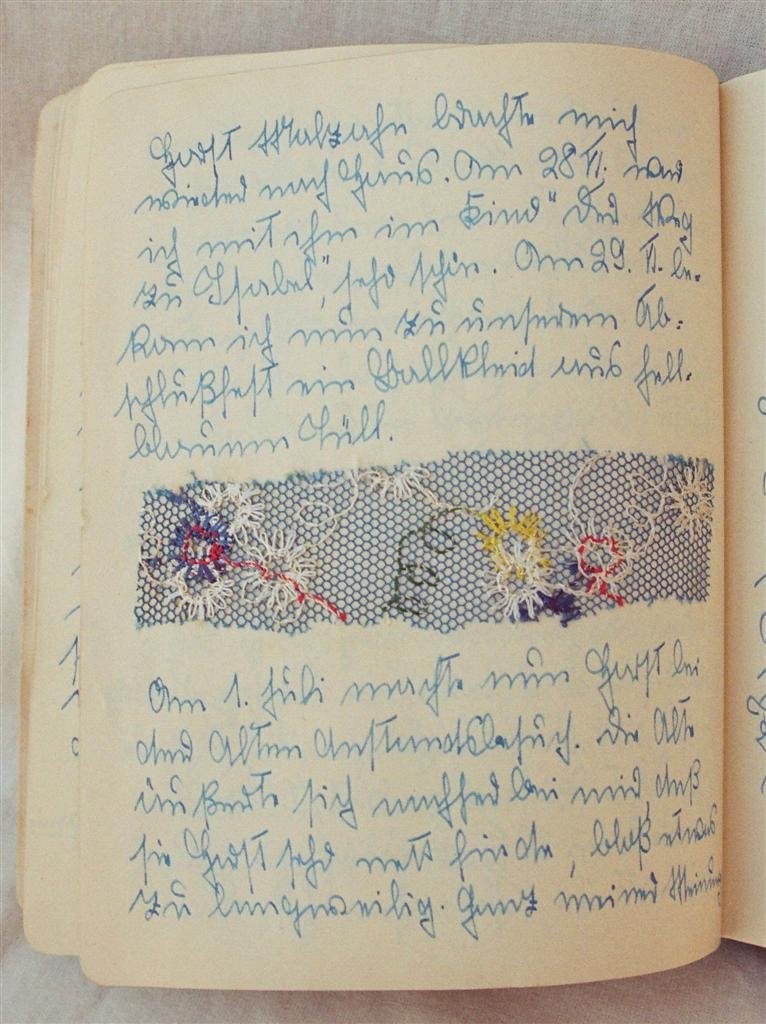 Horst Malzahn brachte mich
wieder nach Haus. Am 28. VI. war
ich mit ihm im Kino "Der Weg
zu Isabel", sehr schön. Am 29. VI. be-
kam ich nun zu unserem Ab-
schlußfest ein Ballkleid aus hell-
blauem Tüll.
Am 1. Juli machte nun Horst bei
der Alten Anstandsbesuch. Die Alte
äußerte sich nachher bei mir, daß
sie Horst sehr nett finde, bloß etwas
zu langweilig. Ganz meiner Meinung